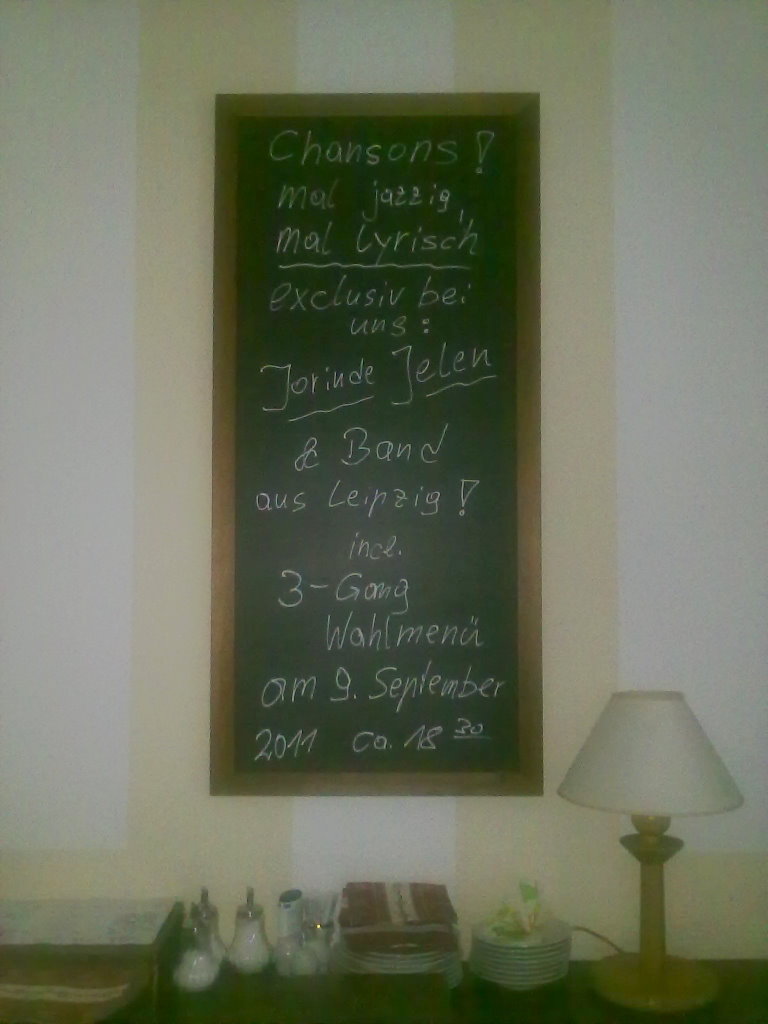 Chansons!
mal jazzig,
mal lyrisch
exclusiv bei
uns:
Jorinde Jelen
& Band
aus Leipzig!
incl.
3-Gang
Wahlmenü
am 9. September
2011 ca. 18 30